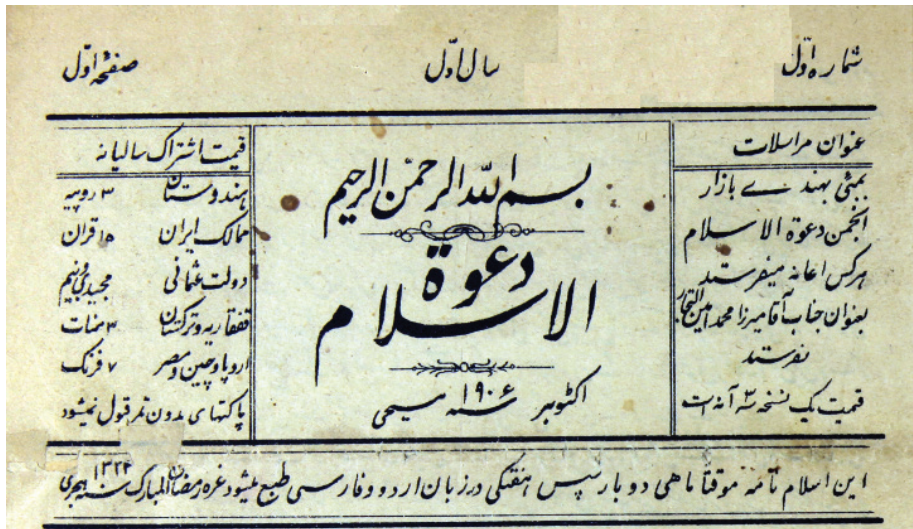 شماره اوّل
سال اوّل
صفحهٔ اوّل
عنوان مراسلات
بمبئی بهندے بازار
انجمن دعوة الاسلام
هرکس اعانه میفرستد
بعنوان جناب آقا میرزا محمد امین التجار
بفرستد
قیمت یک نسخه سه آنه است
بسم الله الرحمن الرحیم
دعوة
الاسلام
اکتوبر ۱۹۰۶ سنه مسیحی
قیمت اشتراک سالیانه
هندوستان ۳ روپیه
ممالک ایران ۱۵ قران
دولت عثمانی مجیدی ونیم
قفقازیه وترکستان ۳ منات
اروپا وچین ومصر ۷ فرنک
پاکتهای بدون تمر قبول نمیشود
این اسلام نامه موقتاً ماهی دو بار سپس هفتگی در زبان اردو و فارسی طبع میشود غره رمضان المبارک سنه ۱۳۲۴ هجری